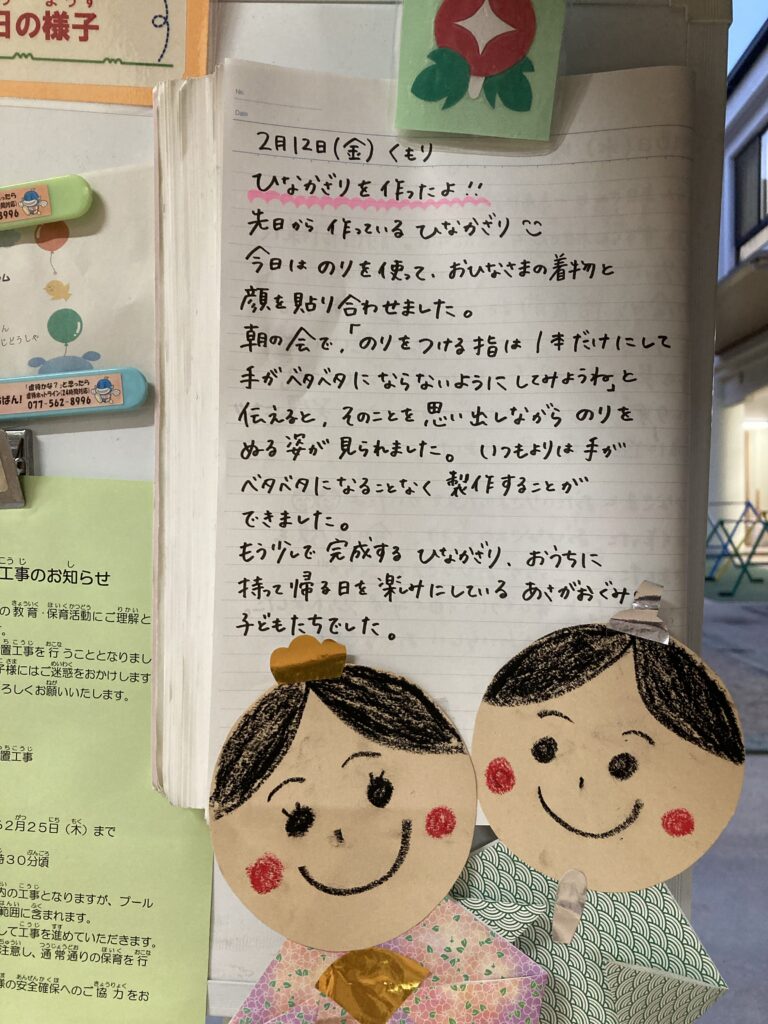 日の様子
No.
Date
2月12日(金) くもり
ひなかざりを作ったよ!!
先日から 作っている ひなかざり
今日は のりを使って、おひなさまの着物と
顔を貼り合わせました。
朝の会で、「のりをつける指は 1本だけにして
手がベタベタに ならないようにしてみようね」と
伝えると、そのことを思い出しながら のりを
ぬる姿が見られました。 いつもよりは 手が
ベタベタになることなく 製作することが
できました。
もう少しで 完成する ひなかざり、おうちに
持って帰る日を楽しみにしている あさがおぐみ
子どもたちでした。
8996
「虐待かな?」と思ったら
虐待ホットライン(24時間対応)
077-562-8996
工事のお知らせ
の教育・保育活動にご理解と
置工事を行うこととなりまし
子様にはご迷惑をおかけします
ろしくお願いいたします。
置工事
2月25日(木)まで
時30分頃
内の工事となりますが、プール
範囲に含まれます。
して工事を進めていただきます。
注意し、通常通りの保育を行
様の安全確保へのご協力をお